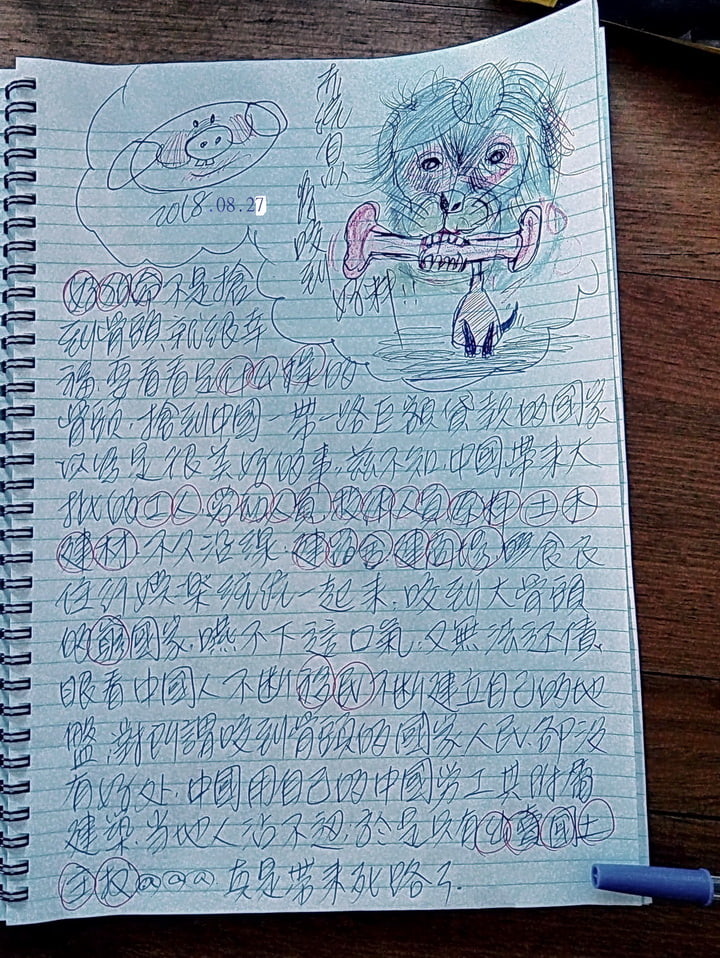 2018.08.27
有
咬到
好料!!
不是搶
到骨頭, 就很幸
福, 要看看是什麼樣的
骨頭, 搶到中國一帶一路巨額貸款的國家
以為是很美好的事, 茲不知, 中國帶來大
批的工人, 勞動人員, 技術人員, 原料, 土木
建材 不久沿線, 建宿舍, 建商場 食衣
住 娛樂統統一起來, 咬到大骨頭
的 國家, 嚥不下這口氣, 又無法还債,
眼看中國人不斷移民 不斷建立自己的地
盤, 對所謂咬到骨頭的國家人民, 都沒
有好处, 中國用自己的中國勞工其附屬
建築, 當地人沾不邊, 於是只有出賣國土
主权@@@ 真是帶來死路了.